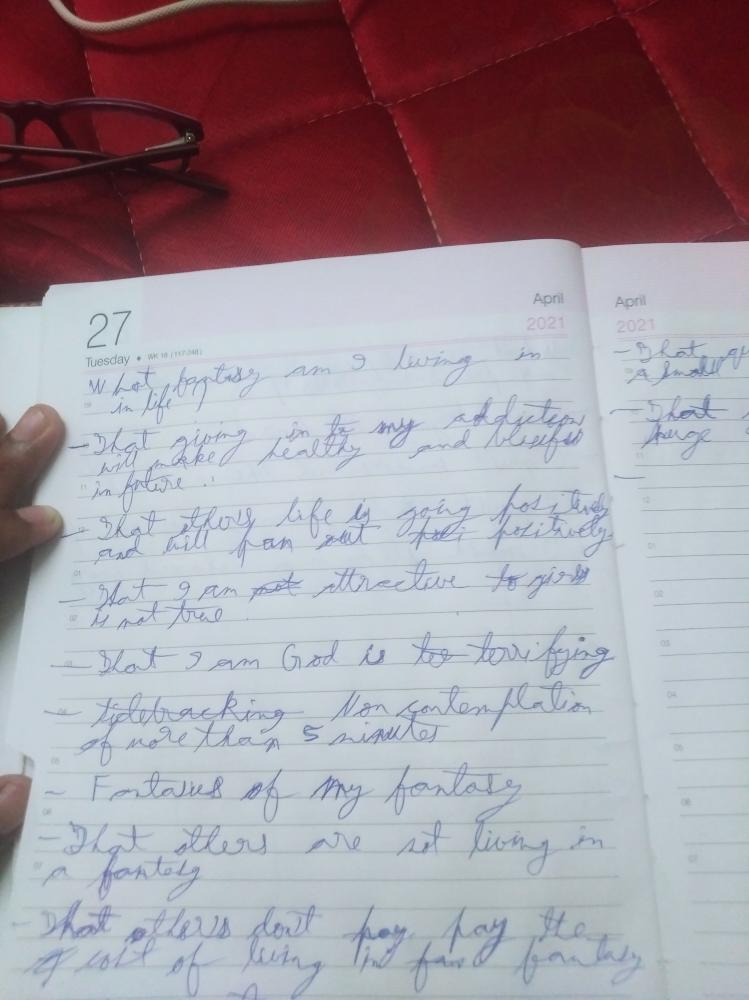 27
April
2021
Tuesday • WK 18 (117-248)
What fantasy am I living in
in life
- That giving in to my addiction
will make healthy and blissful
in future
- That others life is going positively
and will pan out positively
- That I am not attractive to girls
is not true
- That I am God is too terrifying
- sidetracking Non contemplation
of more than 5 minutes
- of my fantasy
- That others are not living in
a fantesy
- That others don't pay pay the
cost of living in fantasy
April
2021
- That
a small
- That